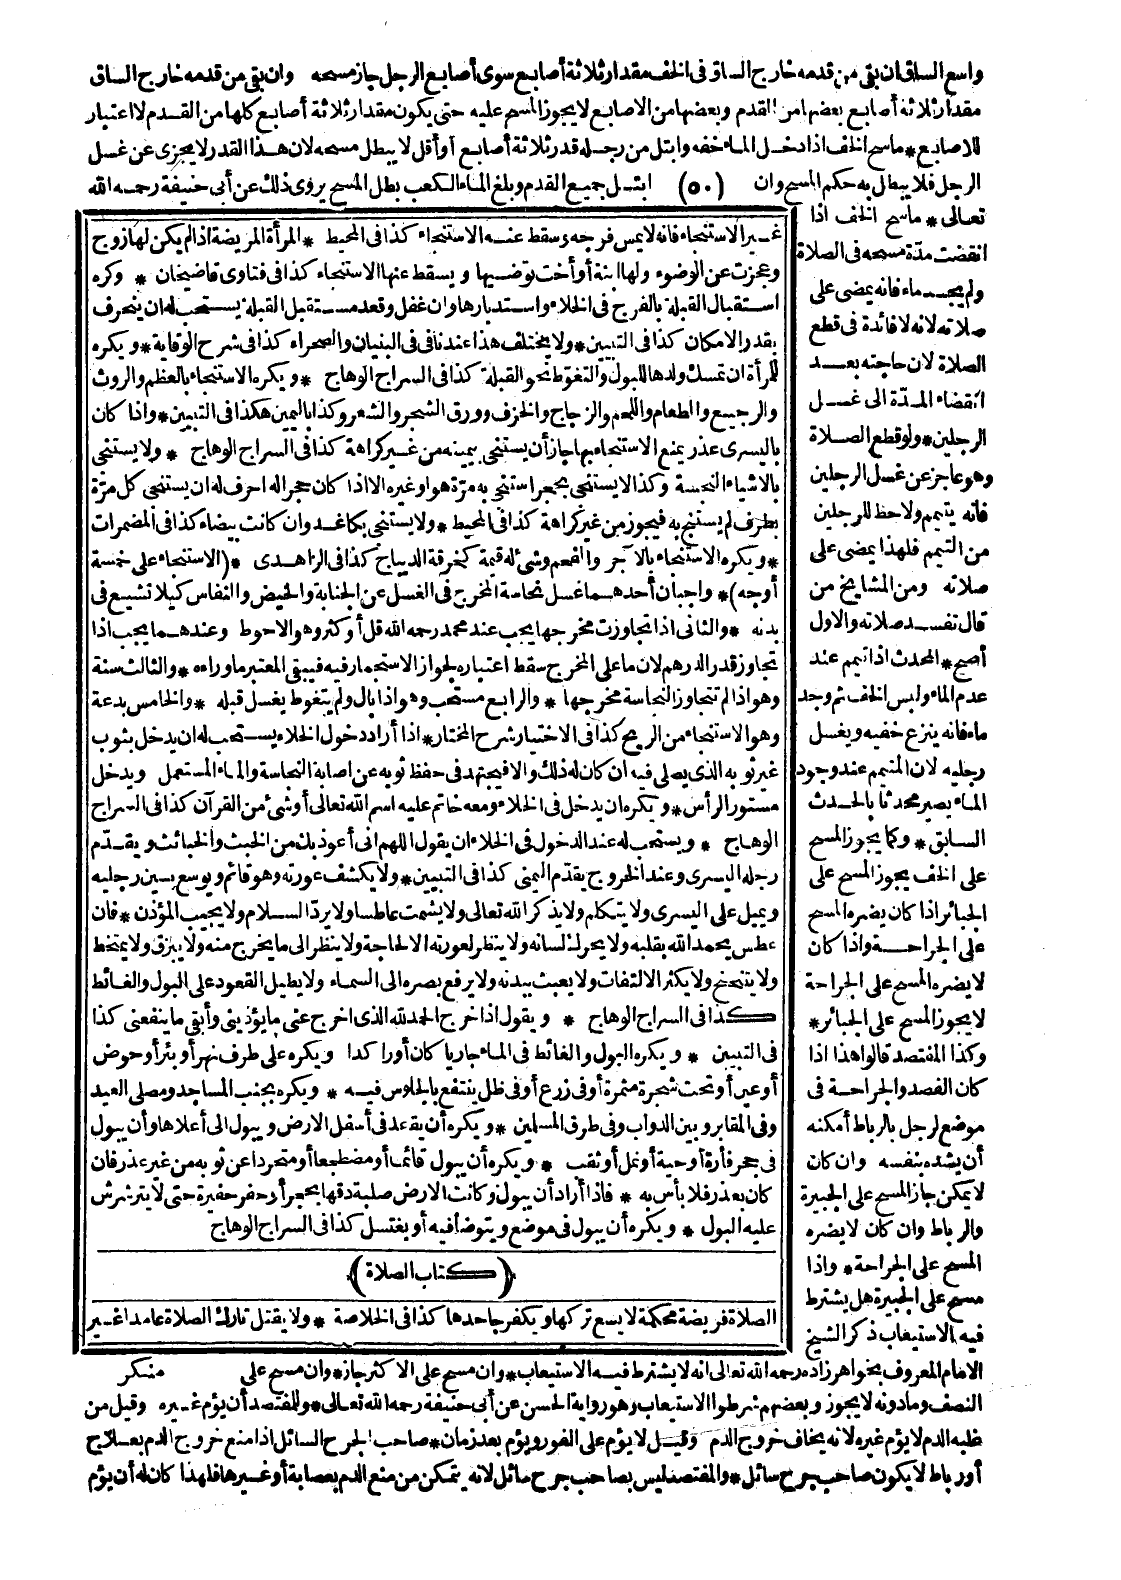 واسع الساق ان بقي من قدمه خارج الساق في الخف مقدار ثلاثة أصابع سوى أصابع الرجل جاز مسحه وان بقي من قدمه خارج الساق
مقدار ثلاثة أصابع بعضها من القدم وبعضها من الاصابع لا يجوز المسح عليه حتى يكون مقدار ثلاثة أصابع كلها من القدم لا اعتبار
للاصابع * ماسح الخف اذا دخل الماء خفه وابتل من رجله قدر ثلاثة أصابع أو أقل لا يبطل مسحه لان هذا القدر لا يجزى عن غسل
الرجل فلا يبطل به حكم المسح وان (٥٠) ابتل جميع القدم وبلغ الماء الكعب بطل المسح يروى ذلك عن أبي حنيفة رحمه الله
تعالى * ماسح الخف اذا
انقضت مدة مسحه في الصلاة
ولم يجد ماء فانه يمضى على
صلاته لانه لا فائدة في قطع
الصلاة لان حاجته بعد
انقضاء المدة الى غسل
الرجلين * ولو قطع الصلاة
وهو عاجز عن غسل الرجلين
فانه يتيمم ولا حظ للرجلين
من التيمم فلهذا يمضى على
صلاته ومن المشايخ من
قال تفسد صلاته والاول
أصح * المحدث اذا تيمم عند
عدم الماء ولبس الخف ثم وجد
ماء فانه ينزع خفيه ويغسل
رجليه لان المتيمم عند وجود
الماء يصير محدثا بالحدث
السابق * وكما يجوز المسح
على الخف يجوز المسح على
الجبائر اذا كان يضره المسح
على الجراحة واذا كان
لا يضره المسح على الجراحة
لا يجوز المسح على الجبائر *
وكذا المفتصد قالوا هذا اذا
كان الفصد والجراحة في
موضع لرجل بالرباط أمكنه
أن يشده بنفسه وان كان
لا يمكن جاز المسح على الجبيرة
والرباط وان كان لا يضره
المسح على الجراحة * واذا
مسح على الجبيرة هل يشترط
فيه الاستيعاب ذكر الشيخ
غير الاستنجاء فانه لا يمس فرجه وسقط عنه الاستنجاء كذا في المحيط * المرأة المريضة اذا لم يكن لها زوج
وعجزت عن الوضوء ولها ابنة أو أخت توضيها ويسقط عنها الاستنجاء كذا في فتاوى قاضيخان * وكره
استقبال القبلة بالفرج في الخلاء واستدبارها وان غفل وقعد مستقبل القبلة يستحب له ان ينحرف
بقدر الامكان كذا في التبيين * ولا يختلف هذا عندنا في البنيان والصحراء كذا في شرح الوقاية * ويكره
للمرأة ان تمسك ولدها للبول والتغوط نحو القبلة كذا في السراج الوهاج * ويكره الاستنجاء بالعظم والروث
والرجيع والطعام واللحم والزجاج والخزف وورق الشجر والشعر وكذا باليمين هكذا في التبيين * واذا كان
باليسرى عذر يمنع الاستنجاء بها جاز أن يستنجى بيمينه من غير كراهة كذا في السراج الوهاج * ولا يستنجى
بالاشياء النجسة وكذا لا يستنجى بحجر استنجى به مرة هو أو غيره الا اذا كان حجرا له احرف له ان يستنجى كل مرة
بطرف لم يستنج به فيجوز من غير كراهة كذا في المحيط * ولا يستنجى بكاغد وان كانت بيضاء كذا في المضمرات
* ويكره الاستنجاء بالآجر والفحم وشئ له قيمة كخرقة الديباج كذا في الزاهدى * (الاستنجاء على خمسة
أوجه) * واجبان أحدهما غسل نجاسة المخرج في الغسل عن الجنابة والحيض والنفاس كيلا تشيع في
بدنه * والثانى اذا تجاوزت مخرجها يجب عند محمد رحمه الله قل أو كثر وهو الاحوط وعندهما يجب اذا
تجاوز قدر الدرهم لان ما على المخرج سقط اعتباره لجواز الاستجمار فيه فيبقى المعتبر ما وراءه * والثالث سنة
وهو اذا لم تتجاوز النجاسة مخرجها * والرابع مستحب وهو اذا بال ولم يتغوط يغسل قبله * والخامس بدعة
وهو الاستنجاء من الريح كذا في الاختيار شرح المختار * اذا أراد دخول الخلاء يستحب له ان يدخل بثوب
غير ثوبه الذى يصلى فيه ان كان له ذلك والا فيجتهد في حفظ ثوبه عن اصابة النجاسة والماء المستعمل ويدخل
مستور الرأس * ويكره ان يدخل في الخلاء ومعه خاتم عليه اسم الله تعالى أو شئ من القرآن كذا في السراج
الوهاج * ويستحب له عند الدخول في الخلاء ان يقول اللهم انى أعوذ بك من الخبث والخبائث ويقدم
رجله اليسرى وعند الخروج يقدم اليمنى كذا في التبيين * ولا يكشف عورته وهو قائم ويوسع بين رجليه
ويميل على اليسرى ولا يتكلم ولا يذكر الله تعالى ولا يشمت عاطسا ولا يرد السلام ولا يجيب المؤذن * فان
عطس يحمد الله بقلبه ولا يحرك لسانه ولا ينظر لعورته الا لحاجة ولا ينظر الى ما يخرج منه ولا يبزق ولا يمتخط
ولا يتنحنح ولا يكثر الالتفات ولا يعبث ببدنه ولا يرفع بصره الى السماء ولا يطيل القعود على البول والغائط
كذا في السراج الوهاج * ويقول اذا خرج الحمد لله الذى اخرج عنى ما يؤذينى وأبقى ما ينفعنى كذا
في التبيين * ويكره البول والغائط في الماء جاريا كان أو راكدا ويكره على طرف نهر أو بئر أو حوض
أو عين أو تحت شجرة مثمرة أو في زرع أو في ظل ينتفع بالجلوس فيه * ويكره بجنب المساجد ومصلى العيد
وفي المقابر وبين الدواب وفي طرق المسلمين * ويكره أن يقعد في أسفل الارض ويبول الى أعلاها وأن يبول
في جحر فأرة أو حية أو نمل أو ثقب * ويكره أن يبول قائما أو مضطجعا أو متجردا عن ثوبه من غير عذر فان
كان بعذر فلا بأس به * فاذا أراد أن يبول وكانت الارض صلبة دقها بحجر أو حفر حفيرة حتى لا يترشرش
عليه البول * ويكره أن يبول في موضع ويتوضأ فيه أو يغتسل كذا في السراج الوهاج
(كتاب الصلاة)
الصلاة فريضة محكمة لا يسع تركها ويكفر جاحدها كذا في الخلاصة * ولا يقتل تارك الصلاة عامدا غير
منكر
الامام المعروف بخواهرزاده رحمه الله تعالى انه لا يشترط فيه الاستيعاب * وان مسح على الاكثر جاز * وان مسح على
النصف وما دونه لا يجوز وبعضهم شرطوا الاستيعاب وهو رواية الحسن عن أبي حنيفة رحمه الله تعالى * وللمفتصد أن يؤم غيره وقيل من
غلبه الدم لا يؤم غيره لانه يخاف خروج الدم وقيل لا يؤم على الفور ويؤم بعد زمان * صاحب الجرح السائل اذا منع خروج الدم بعلاج
أو رباط لا يكون صاحب جرح سائل * والمفتصد ليس بصاحب جرح سائل لانه يتمكن من منع الدم بعصابة أو غيرها فلهذا كان له أن يؤم